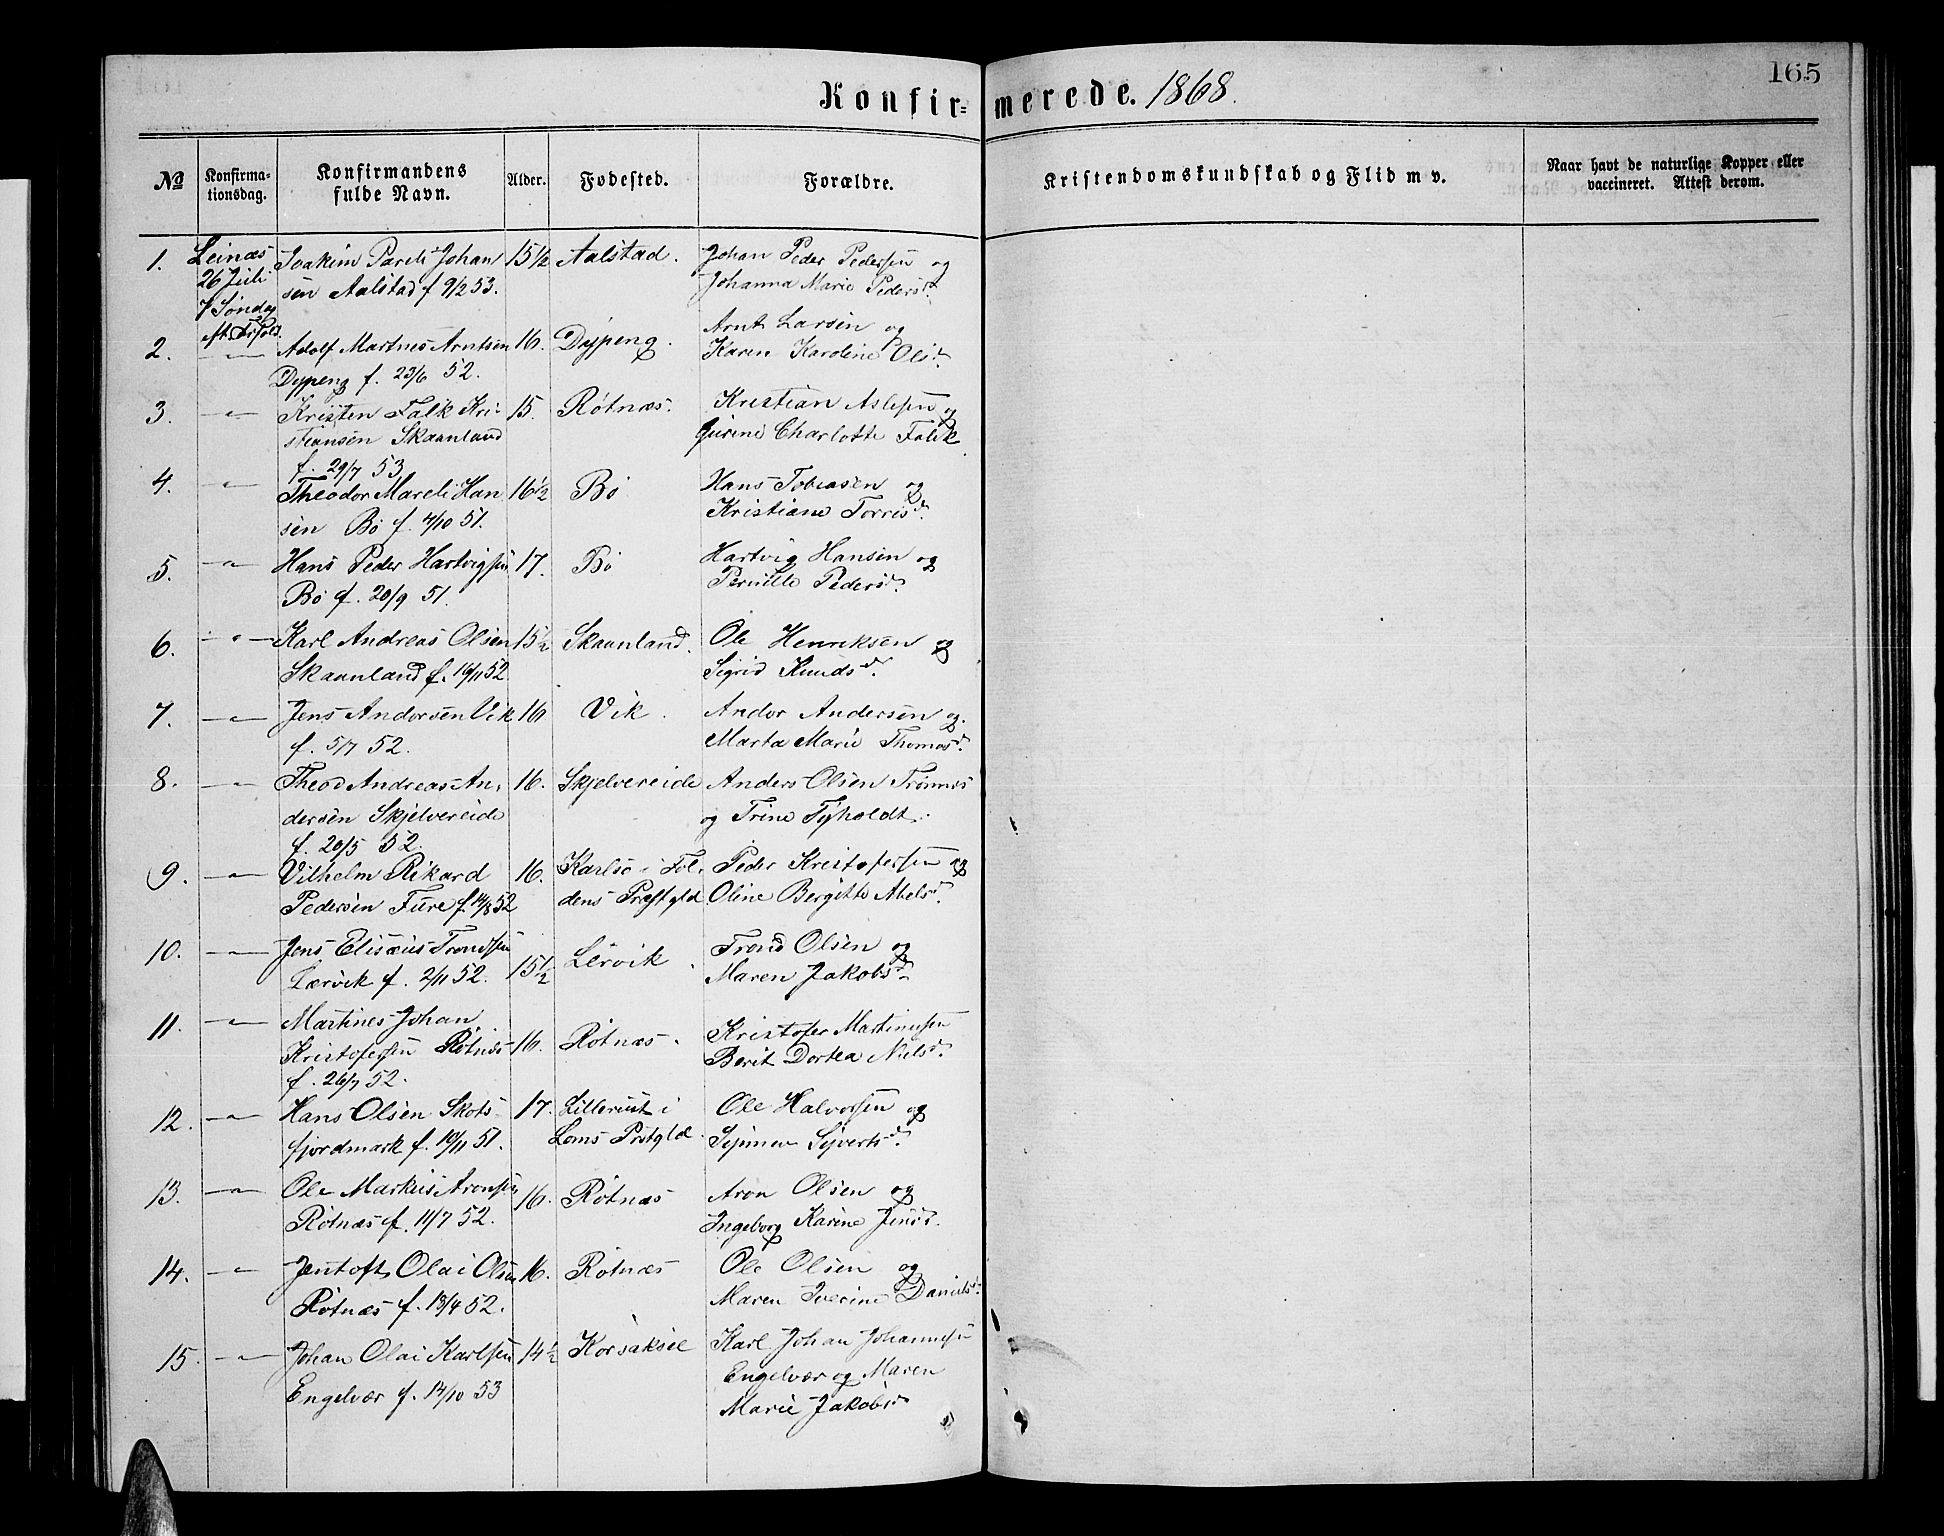 165
Konfir= merede. 1868.
No
Konfirma-
tionsdag.
Konfirmandens
fulde Navn.
Alder.
Fødested.
Forældre.
Kristendomskundskab og Flid m v.
Naar havt de naturlige Kopper eller
vaccineret. Attest derom.
1. Leinæs Joakim Pareli Johan 15 1/2 Aalstad. Johan Peder Pedersen og
26 Juli sen Aalstad f 9/2 53. Johanna Marie Pedersd.
7 Søndag
2. — " — Adolf Martnes Arntsen 16. Dypeng. Arnt Larsen og
Dypeng f. 23/6 52. Karen Karoline Olsd.
3. — " — Kristen Falk Kri- 15. Røtnæs. Kristian Aslesen og
stiansen Skaanland Charlotte Falck
f. 29/7 53
4. — " — Theodor Mareli Han 16 1/2 Bø Hans Tobiasen og
sen Bø f. 4/10 51. Kristiane Torrisd.
5. — " — Hans Peder Hartvigsen 17. Bø Hartvig Hansen og
Bø f. 20/9 51. Pernille Pedersd.
6. — " — Karl Andreas Olsen 15 1/2 Skaanland. Ole Henriksen og
Skaanland f. 16/11 52. Sigrid Knudsd.
7. — " — Jens Andorsen Vik 16 Vik. Andor Andersen og
f. 5/7 52. Marta Marie Thomasd.
8. — " — Theod Andreas An- 16. Skjelvereide Anders Olsen Trønnes
dersen Skjelvereide og Trine Tyholdt.
f. 20/5 52.
9. — " — Vilhelm Rikard 16. Karlsø i Fol- Peder Kristofersen og
Pedersen Fure f. 14/8 52 dens Præstgld. Oline Bergitte Abelsd.
10. — " — Jens Elisæus Trondsen 15 1/2 Lervik. Trond Olsen og
Lærvik f. 2/11 52. Maren Jakobsd.
11. — " — Martines Johan 16. Røtnæs. Kristofer Martinusen
Kristofersen Røtnæs Berit Dortea Nielsd.
f. 26/7 52.
12. — " — Hans Olsen Skots- 17. i Ole Halvorsen og
fjordmark f. 19/11 51. Loms Prstgld. Syvertsd.
13. — " — Ole Markus Aronsen 16. Røtnæs Aron Olsen og
Røtnæs f. 11/7 52. Ingeborg Karine Jensd.
14. — " — Jentoft Olai Olsen 16. Røtnæs Ole Olsen og
Røtnæs f. 13/4 52. Maren Iverine Danielsd.
15. — " — Johan Olai Karlsen 14 1/2 Korsaksøl Karl Johan Johannesen
Engelvær f. 14/10 53 Engelvær og Maren
Marie Jakobsd